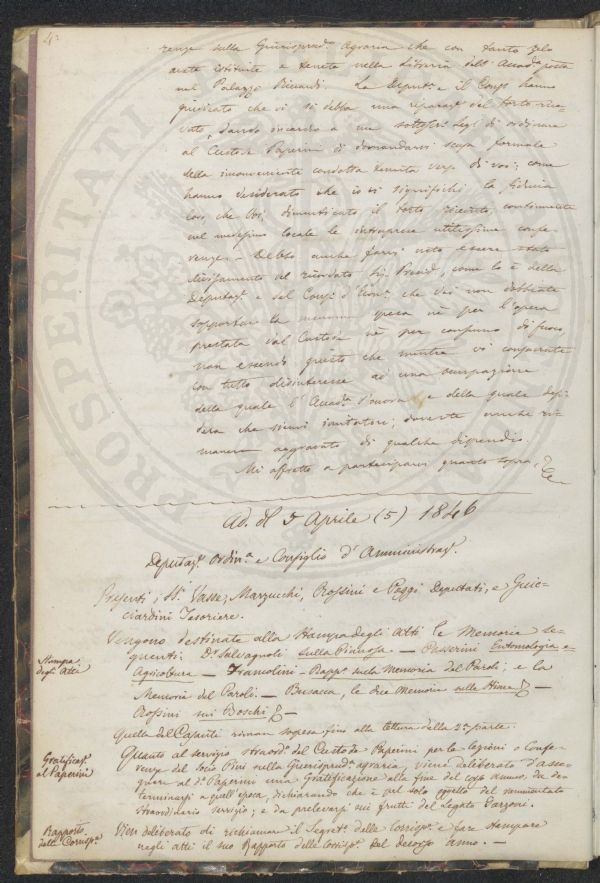 42
renze sulla Giurisprud.ª Agraria che con tanto zelo
avete istituite e tenete nella Libreria dell' Accad.ª posta
nel Palazzo Riccardi. La Deput.e e il Cons.º hanno
giudicato che vi si debba una riparaz.e del torto rice=
vuto, dando incarico a me sottoscr. Seg.º di ordinare
al Custode Paperini di domandarvi scusa formale
della inconveniente condotta tenuta verso di voi; come
hanno desiderato che io vi significhi la fiducia
loro, che Voi, dimenticato il torto ricevuto, continuerete
nel medesimo locale le intraprese utilissime confe=
renze. – Debbo anche farvi noto essere stato
divisamento del ricordato Sig. Presid.e, come lo è della
Deputaz.e e del Cons.º d'Amm.e che Voi non dobbiate
sopportar la menoma spesa nè per l'opera
prestata dal Custode nè per consumo di fuoco,
non essendo giusto che mentre vi consacrate
con tutto disinteresse ad una occupazione
della quale l'Accad.ª s'onora, e della quale desi=
dera che siavi imitatori, doveste anche ri=
manere aggravato di qualche dispendio.
Mi affretto a parteciparvi quanto sopra, &c
Ad. dì 5 Aprile (5) 1846
Deputaz.e Ordin.ª e Consiglio d'Amministraz.e
Presenti, SS.i Vasse, Marzucchi, Rossini e Poggi Deputati, e Guic=
ciardini Tesoriere.
Stampa
degli Atti
Vengono destinate alla Stampa degli Atti le Memorie se=
guenti. D.r Salvagnoli sulla – Passerini Entomologia e
Agricoltura – Tramolini – Rapp.º sulla Memoria del Paroli; e la
Memoria del Paroli. – Busacca, le due Memorie sulle –
Rossini sui Boschi –
Quella del Caputi riman sospesa fino alla lettura della 2.ª parte.
Gratificaz.e
al Paperini
Quanto al servizio straord.º del Custode Paperini per le lezioni o Confe=
renze del Socio Pini sulla Giurisprud.ª agraria, viene deliberato d'asse=
gnare al d.º Paperini una Gratificazione alla fine del corso annuo, da de=
terminarsi a quell'epoca, dichiarando che è pel solo oggetto del rammentato
straordinario servizio; e da prelevarsi sui frutti del Legato Garzoni.
Rapporto
della Corrisp.ª
Vien deliberato di richiamare il Segret.º delle Corrisp.e a fare stampare
negli atti il suo Rapporto delle Corrisp.e del decorso anno. –